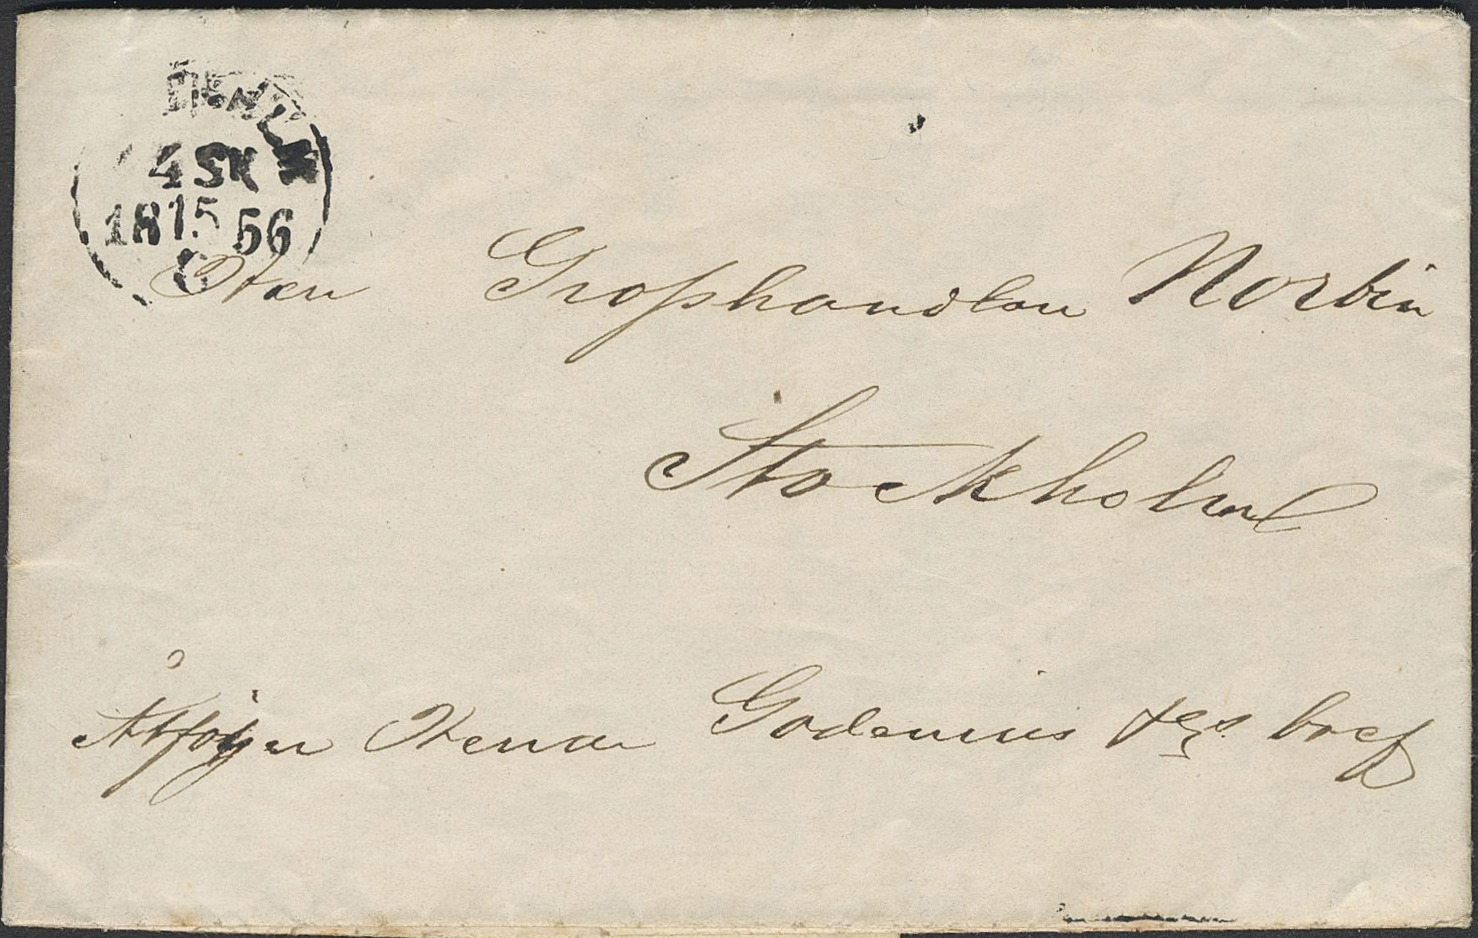 4 SK
18 15 56
6
Herr Grosshandlaren Norbin
Stockholm
Åtföljer Herrar Godenius bref